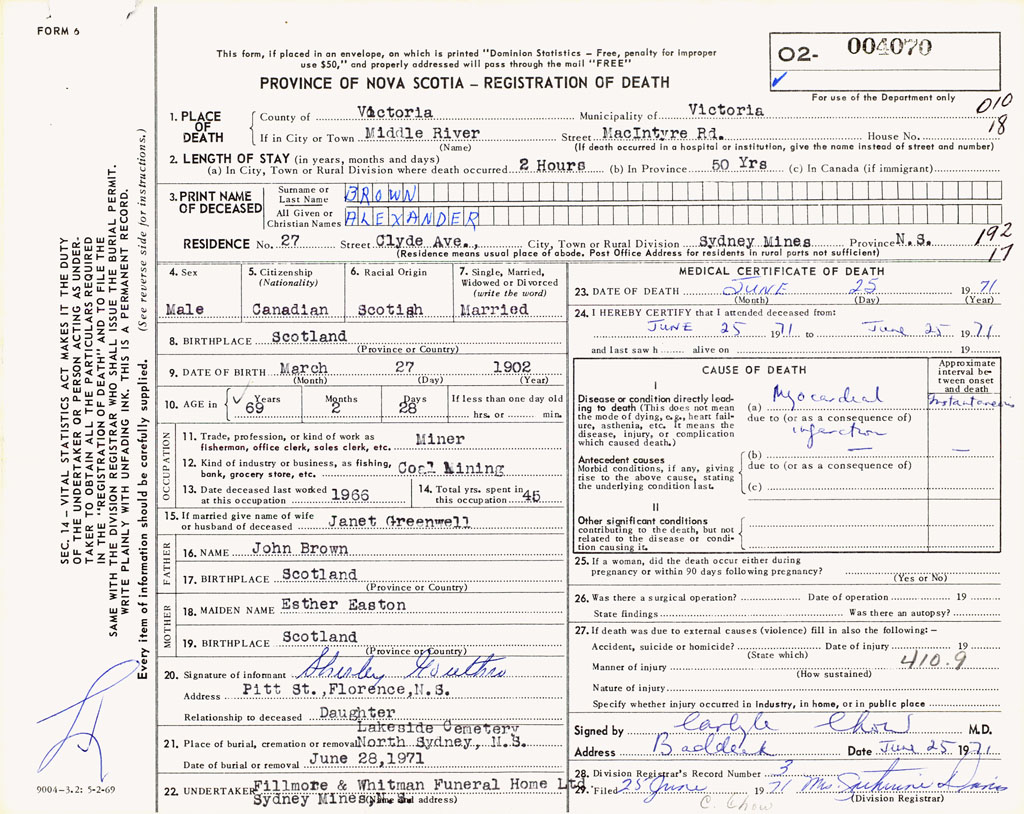 FORM 6
This form, if placed in an envelope, on which is printed "Dominion Statistics – Free, penalty for improper
use $50," and properly addressed will pass through the mail "FREE"
PROVINCE OF NOVA SCOTIA – REGISTRATION OF DEATH
02- 004070
For use of the Department only
010
18
1. PLACE OF DEATH
County of Victoria Municipality of Victoria
If in City or Town Middle River Street MacIntyre Rd. House No.
(Name) (If death occurred in a hospital or institution, give the name instead of street and number)
2. LENGTH OF STAY (in years, months and days)
(a) In City, Town or Rural Division where death occurred 2 Hours (b) In Province 50 Yrs (c) In Canada (if immigrant)
3. PRINT NAME OF DECEASED
Surname or Last Name BROWN
All Given or Christian Names ALEXANDER
RESIDENCE No. 27 Street Clyde Ave., City, Town or Rural Division Sydney Mines Province N.S.
(Residence means usual place of abode. Post Office Address for residents in rural parts not sufficient)
192
17
4. Sex
Male
5. Citizenship
(Nationality)
Canadian
6. Racial Origin
Scotish
7. Single, Married,
Widowed or Divorced
(write the word)
Married
8. BIRTHPLACE Scotland
(Province or Country)
9. DATE OF BIRTH March 27 1902
(Month) (Day) (Year)
10. AGE in Years Months Days If less than one day old
69 2 28 hrs. or min.
OCCUPATION
11. Trade, profession, or kind of work as Miner
fisherman, office clerk, sales clerk, etc.
12. Kind of industry or business, as fishing, Coal Mining
bank, grocery store, etc.
13. Date deceased last worked 1966
at this occupation
14. Total yrs. spent in
this occupation 45
15. If married give name of wife
or husband of deceased Janet Greenwell
FATHER
16. NAME John Brown
17. BIRTHPLACE Scotland
(Province or Country)
MOTHER
18. MAIDEN NAME Esther Easton
19. BIRTHPLACE Scotland
(Province or Country)
20. Signature of informant Shirley Gouthro
Address Pitt St.,Florence,N.S.
Relationship to deceased Daughter
Lakeside Cemetery
21. Place of burial, cremation or removal North Sydney, N.S.
Date of burial or removal June 28,1971
22. UNDERTAKER Fillmore & Whitman Funeral Home Ltd
Sydney Mines, N.S.
(Name and address)
MEDICAL CERTIFICATE OF DEATH
23. DATE OF DEATH JUNE 25 1971
(Month) (Day) (Year)
24. I HEREBY CERTIFY that I attended deceased from:
JUNE 25 1971 to June 25 1971
and last saw h alive on 19
CAUSE OF DEATH
Approximate interval between onset and death
I
Disease or condition directly leading to death (This does not mean the mode of dying, e.g., heart failure, asthenia, etc. It means the disease, injury, or complication which caused death.)
(a) Myocardial Instantaneous
due to (or as a consequence of)
infarction
Antecedent causes
Morbid conditions, if any, giving rise to the above cause, stating the underlying condition last.
(b)
due to (or as a consequence of)
(c)
II
Other significant conditions
contributing to the death, but not related to the disease or condition causing it.
25. If a woman, did the death occur either during
pregnancy or within 90 days following pregnancy?
(Yes or No)
26. Was there a surgical operation? Date of operation 19
State findings Was there an autopsy?
27. If death was due to external causes (violence) fill in also the following: –
Accident, suicide or homicide? Date of injury 19
(State which)
410.9
Manner of injury
(How sustained)
Nature of injury
Specify whether injury occurred in industry, in home, or in public place
Signed by Carlyle Chow M.D.
Address Baddeck Date June 25 1971
28. Division Registrar's Record Number 3
29. Filed 25 June 1971 Mrs. Davis
(Division Registrar)
C. Chow
SEC. 14 – VITAL STATISTICS ACT MAKES IT THE DUTY
OF THE UNDERTAKER OR PERSON ACTING AS UNDER-
TAKER TO OBTAIN ALL THE PARTICULARS REQUIRED
IN THE "REGISTRATION OF DEATH" AND TO FILE THE
SAME WITH THE DIVISION REGISTRAR WHO SHALL ISSUE THE BURIAL PERMIT.
WRITE PLAINLY WITH UNFADING INK. THIS IS A PERMANENT RECORD.
Every item of information should be carefully supplied. (See reverse side for instructions.)
9004–3.2: 5-2-69